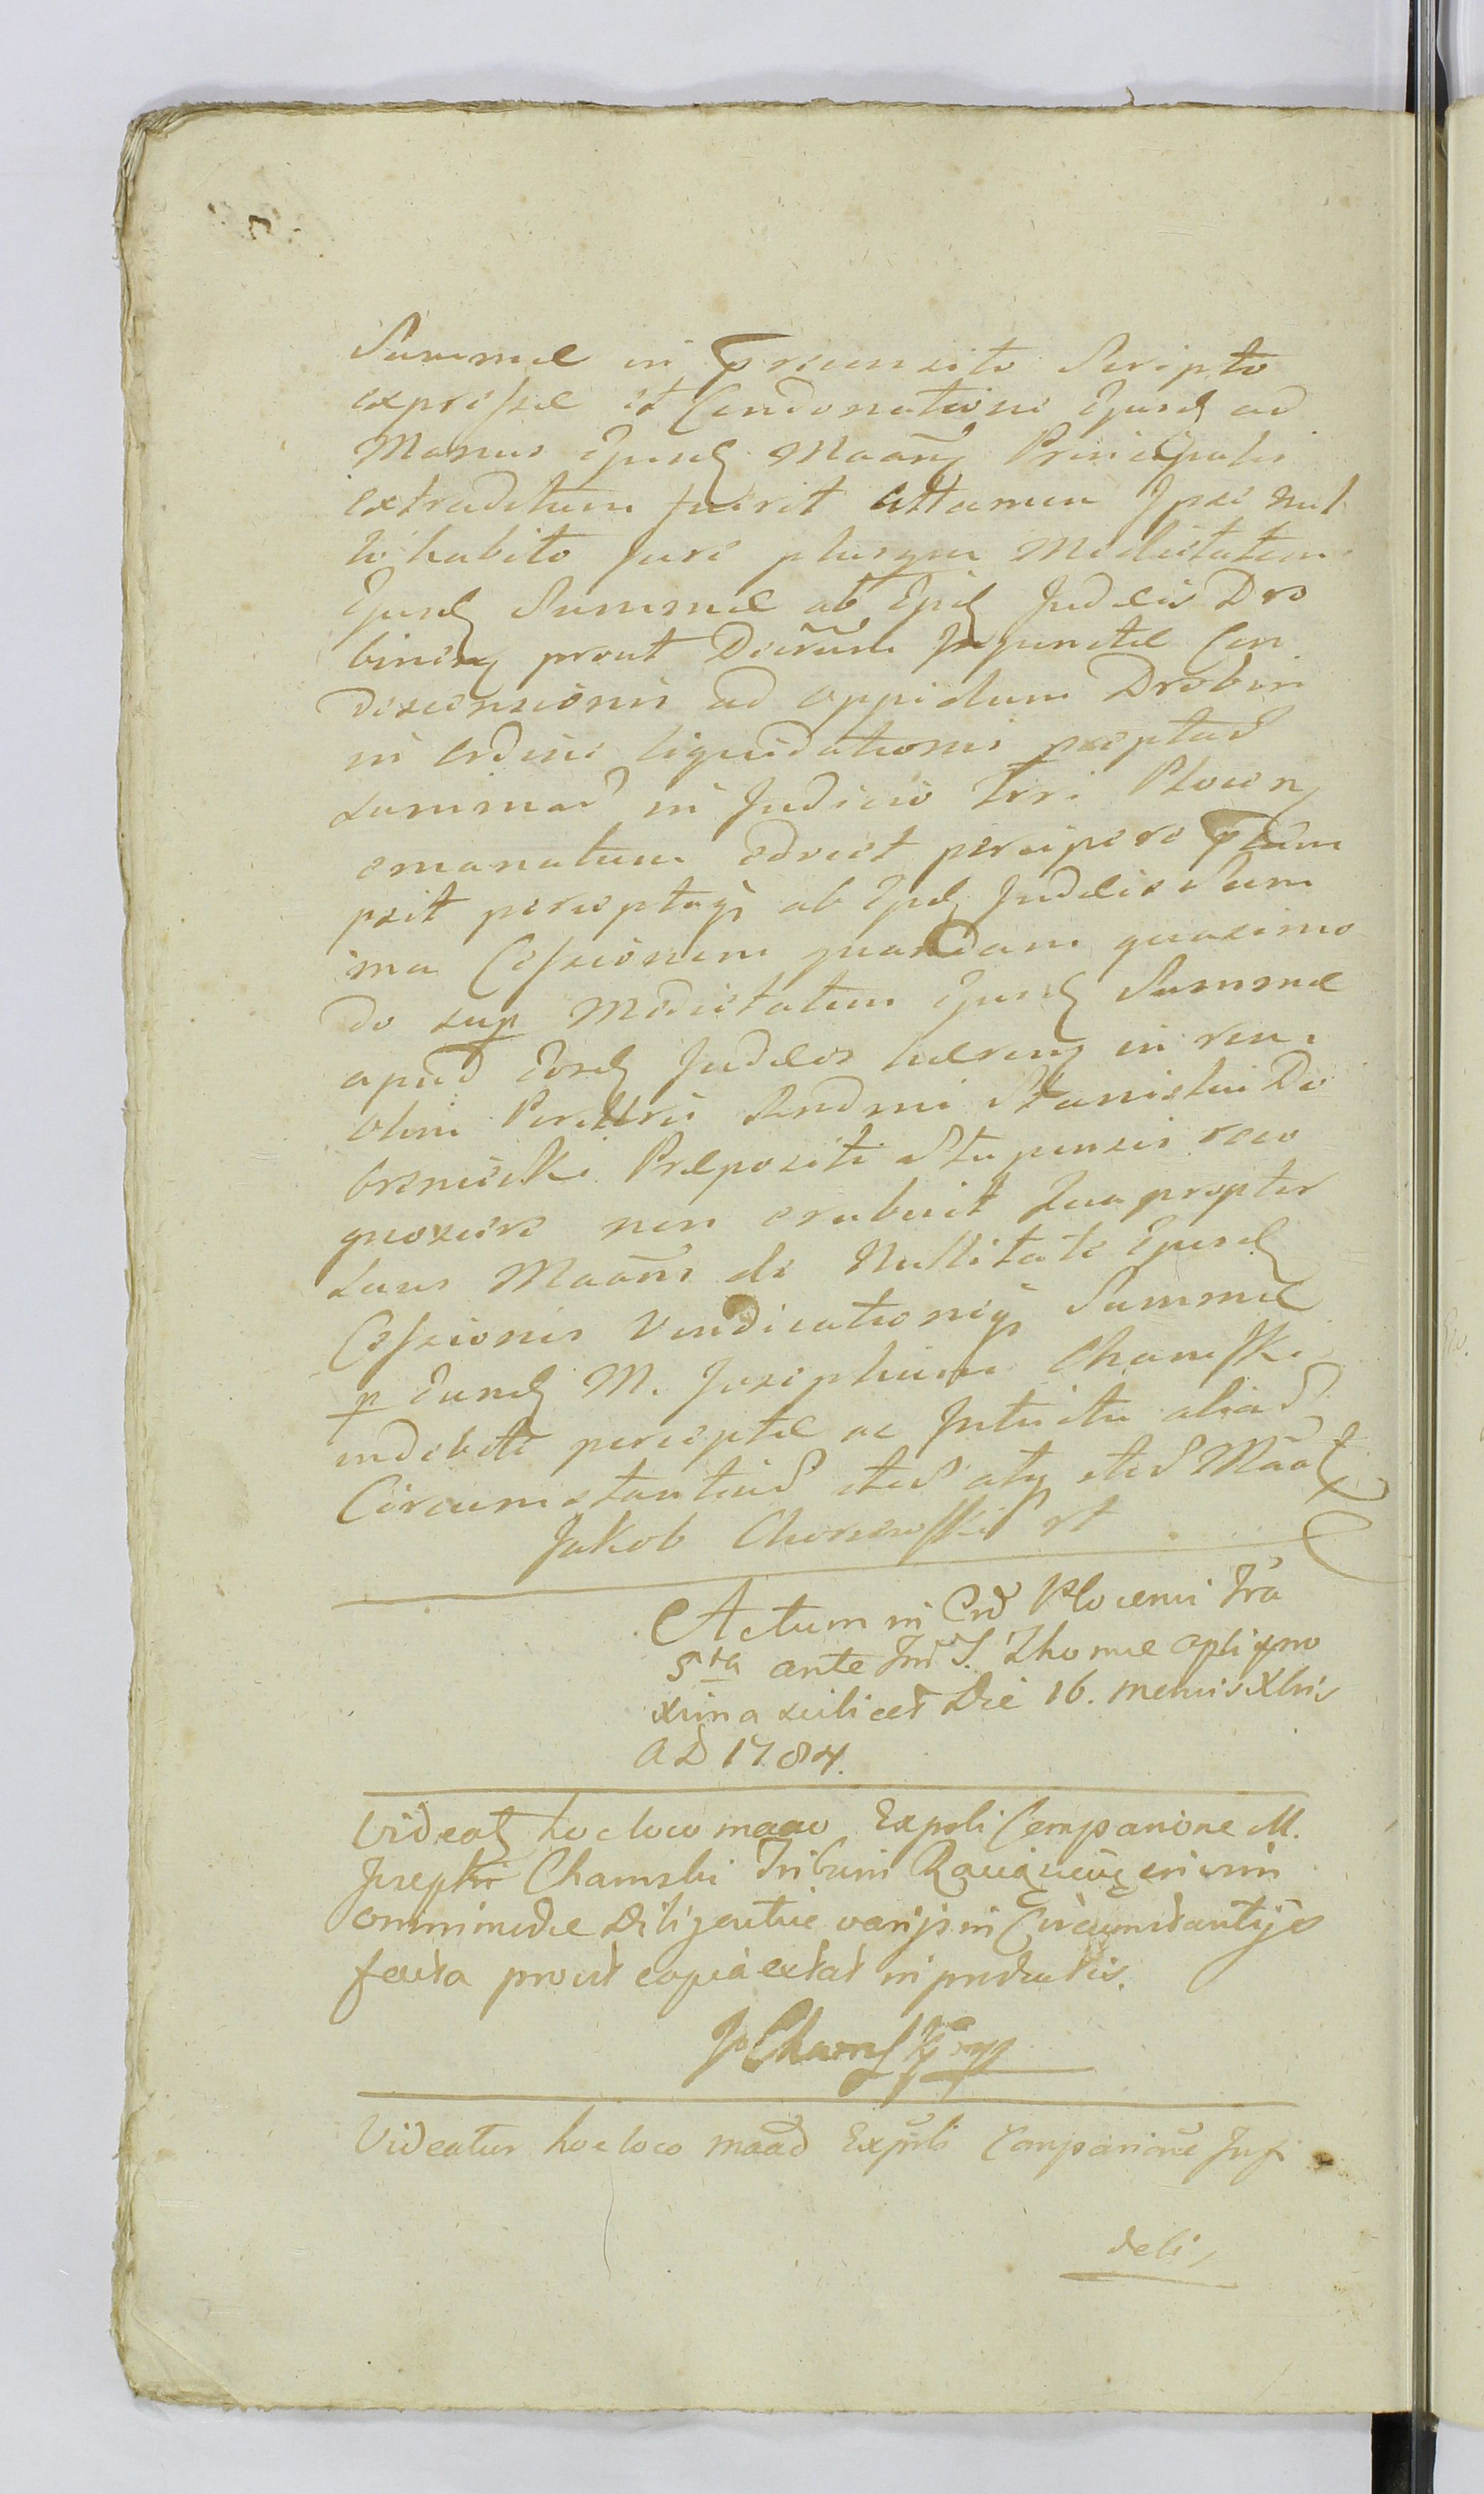 Summæ in præinserto Scripto
expressæ et Condonatione Ejusd ad
Manus Ejusd Maañ Principalis
extraditum fuerit attamen Ipse nul
lo habito Jure plusqm Medietatem
Ejusd Summæ ab Ejsd Judæis Dro
binen prout Decrũm Injunctæ Con
descensionis ad oppidum Drobin
in ordine liquidationis præptas
summas in Judicio Trri Plocen
emanatum edocet percipere Præsum
psit perceptaq ab Ejsd Judæis Sum
ma Cessionem quandam quasimo
do sup Medietatem Ejusd Summæ
apud Eosd Judæos hæren in rem
olim Perillris Rendmi Stanislai Do
brznicki Præpositi Stupensis reco
gnoscere non erubuit Quapropter
suus Maañs de Nullitate Ejusd
Cessionis Vendicationisq Summæ
p Eund M. Josephum Chamski
indebite perceptæ ac Intuitu alias
Circumstantias sted atq sted Maa
Jakob Choromski
Actum in Crd Plocensi Fra
5ta ante Fm S. Thomæ Apli pro
xima scilicet Die 16. mensis Xbris
AD 1784.
Videat hoc loco maao Expoli Comparione M.
Josephi Chamski Tribuni Raciązien in vim
omnimodæ Diligentiæ varijs in Circumstantijs
facta prout copia extat in productis.
J Chamski mp
Videatur hoc loco maad Expoli Comparione Infi
deli,